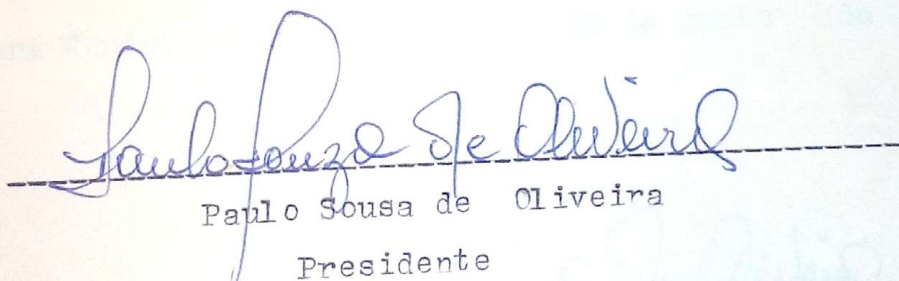 Paulo Souza de Oliveira
Paulo Sousa de Oliveira
Presidente